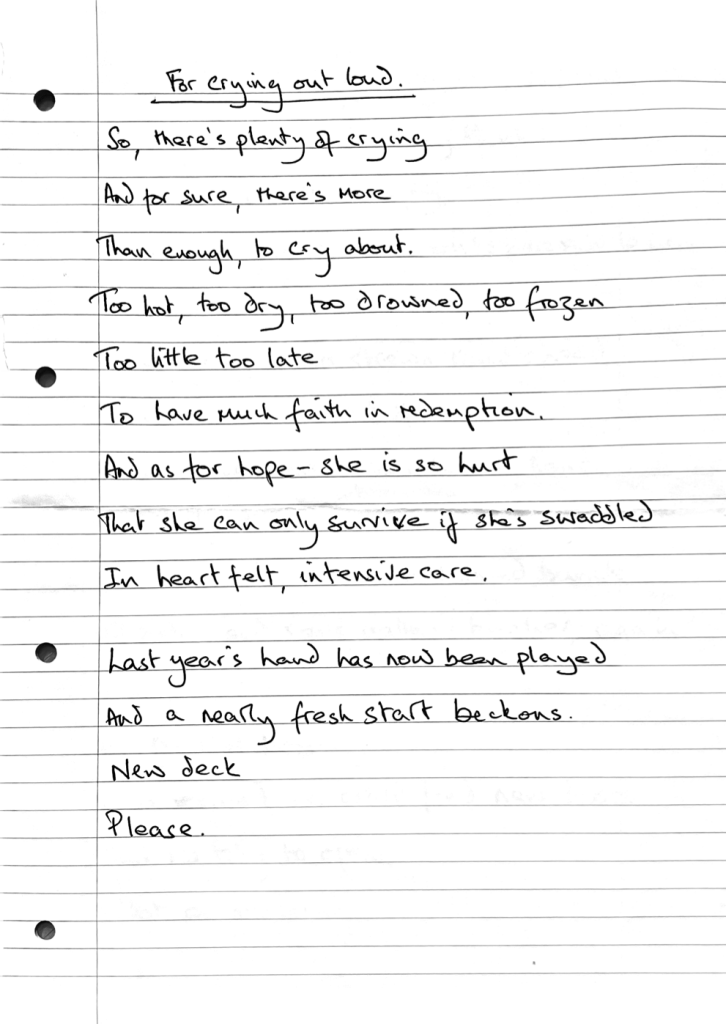 For crying out loud.
So, there's plenty of crying
And for sure, there's more
Than enough, to cry about.
Too hot, too dry, too drowned, too frozen
Too little too late
To have much faith in redemption.
And as for hope - she is so hurt
That she can only survive if she's swaddled
In heart felt, intensive care.
Last year's hand has now been played
And a nearly fresh start beckons.
New deck
Please.